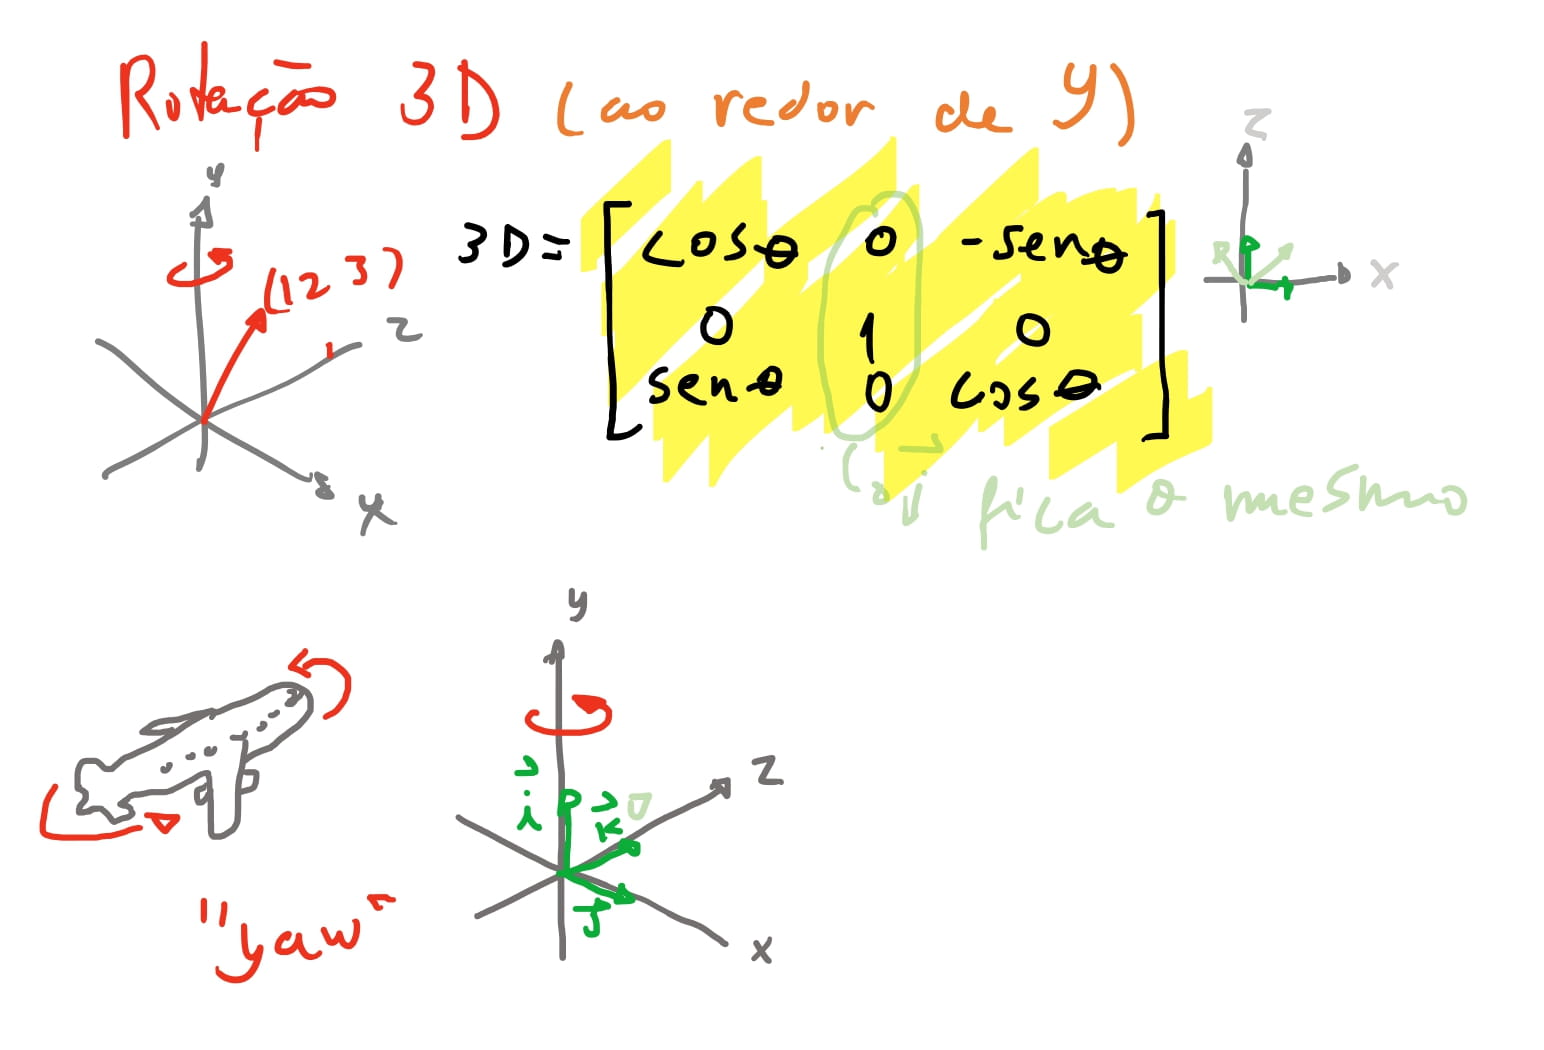 Rotação 3D (ao redor de y)
z
y
(1 2 3)
z
x
3D = [ cosθ 0 -senθ
0 1 0
senθ 0 cosθ ]
x
(o j fica o mesmo
y
z
i
k
j
x
"yaw"